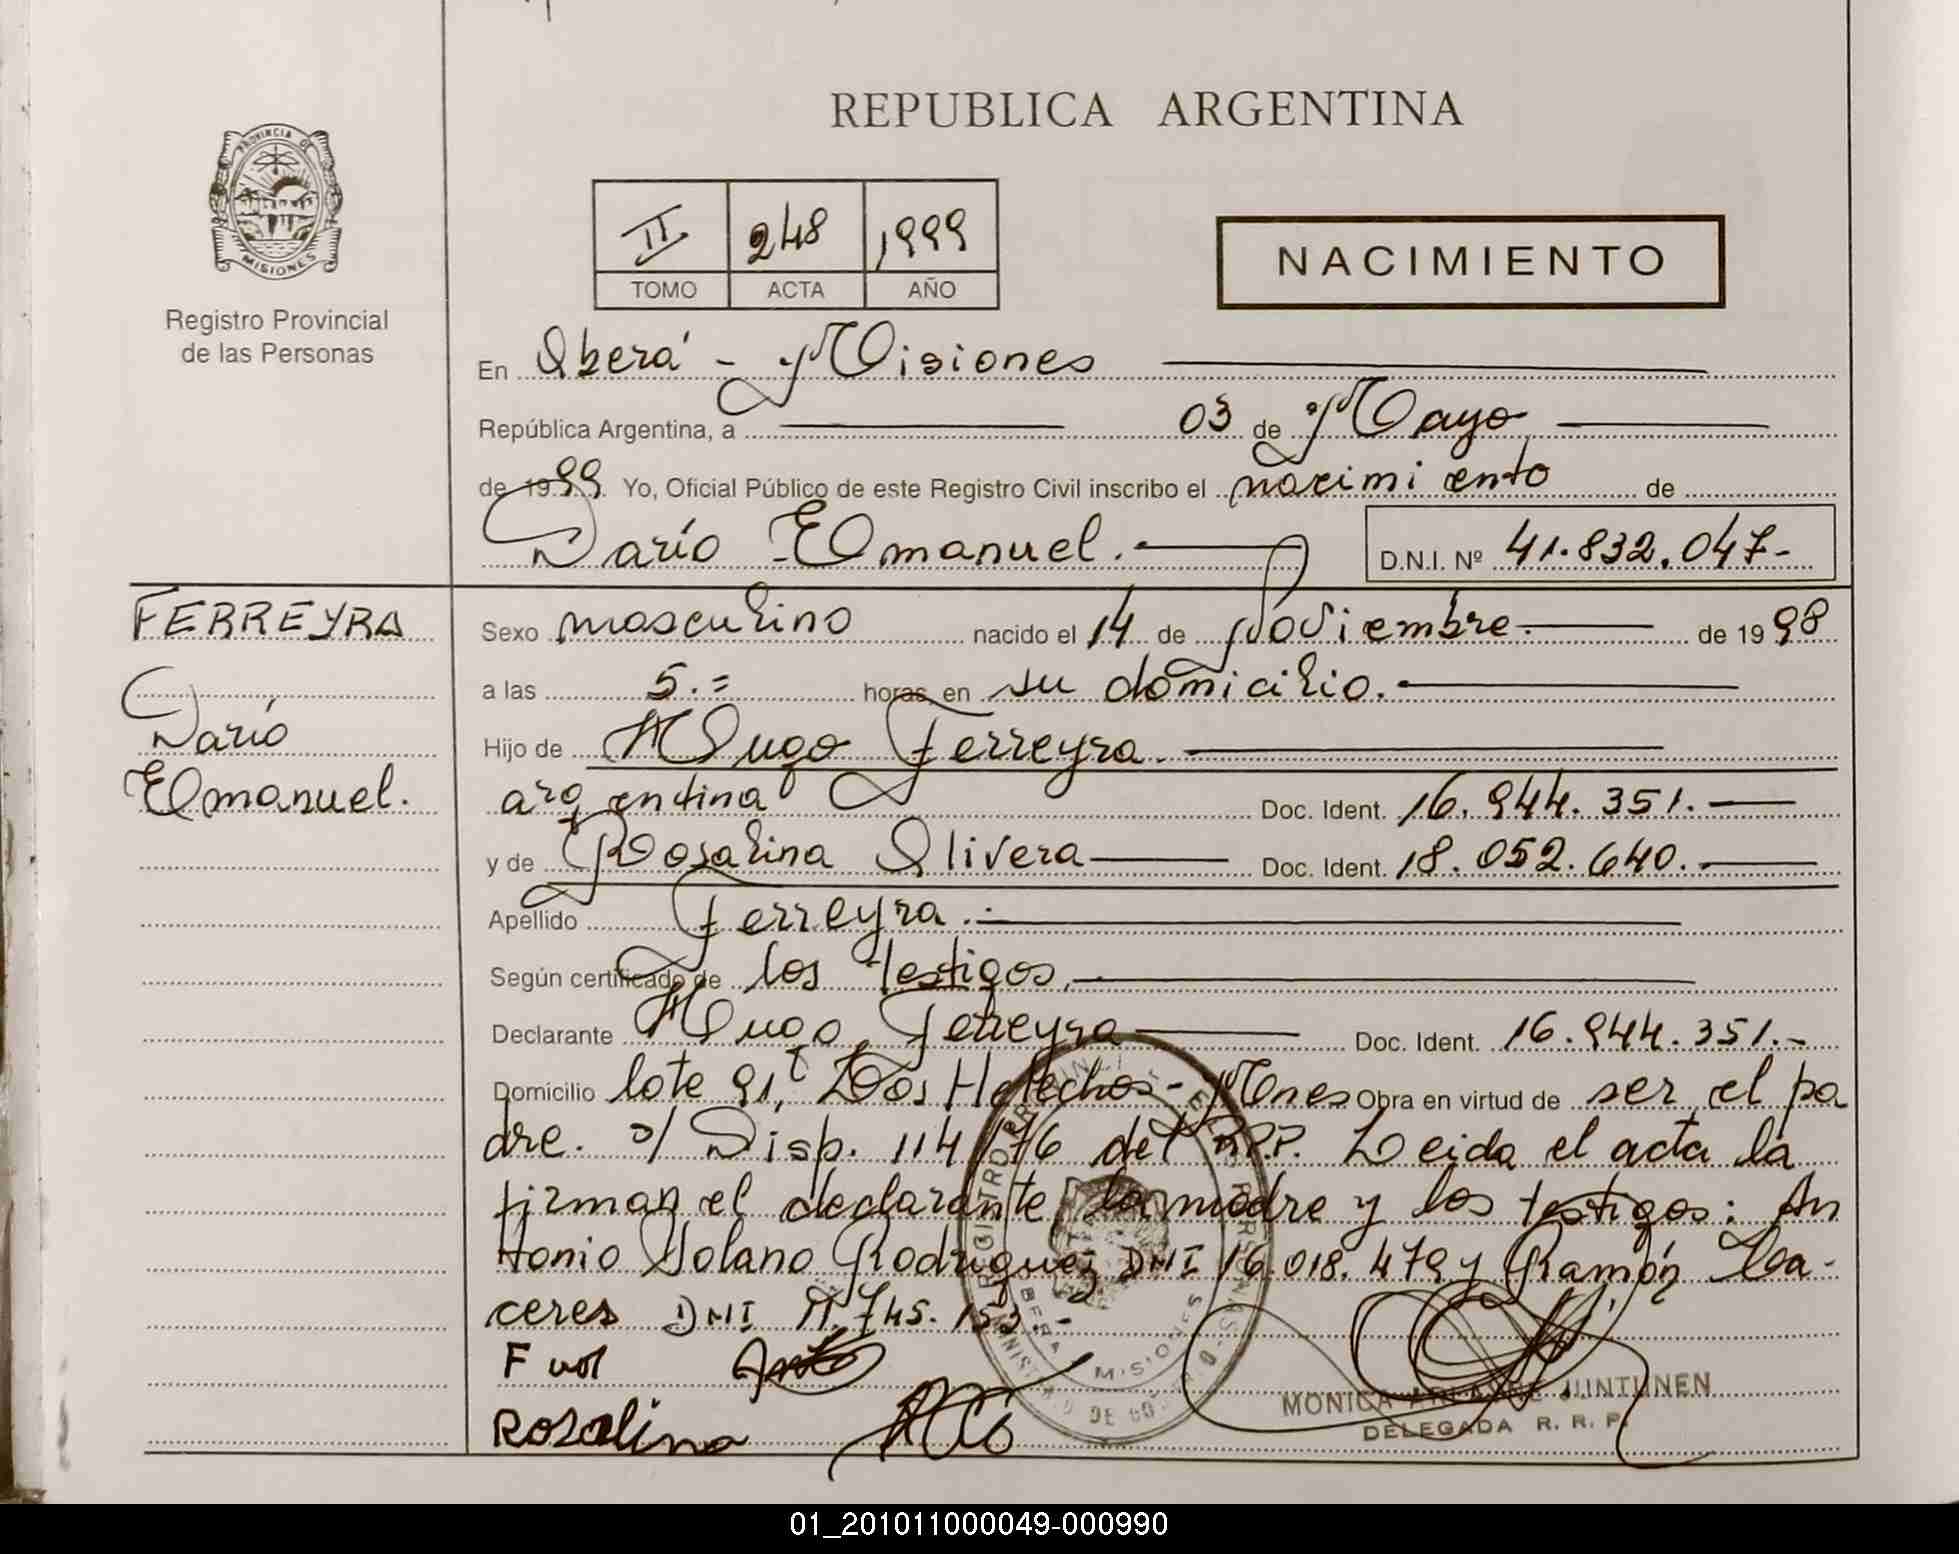 REPUBLICA ARGENTINA
PROVINCIA DE
MISIONES
Registro Provincial
de las Personas
II 248 1999
TOMO ACTA AÑO
NACIMIENTO
En Oberá - Misiones
República Argentina, a 03 de Mayo
de 1999. Yo, Oficial Público de este Registro Civil inscribo el nacimiento de
Darío Emanuel. D.N.I. Nº 41.832.047-
FERREYRA
Darío
Emanuel.
Sexo masculino nacido el 14 de Noviembre. de 1998
a las 5.= horas, en su domicilio.
Hijo de Hugo Ferreyra.
argentina Doc. Ident. 16.944.351.
y de Rosalina Olivera Doc. Ident. 18.052.640.
Apellido Ferreyra.
Según certificado de los testigos,
Declarante Hugo Ferreyra Doc. Ident. 16.944.351.-
Domicilio lote 91, Dos Helechos - Mnes Obra en virtud de ser el pa
dre. s/ Disp. 114/76 del R.P.P. Leida el acta la
firman el declarante, la madre y los testigos: An
tonio Solano Rodriguez DNI 16.018.479 y Ramón Ca-
ceres DNI 11.745.153.-
Rosalina
MONICA JUNTUNEN
DELEGADA R. R. P.
OBERA MISIONES
01_201011000049-000990